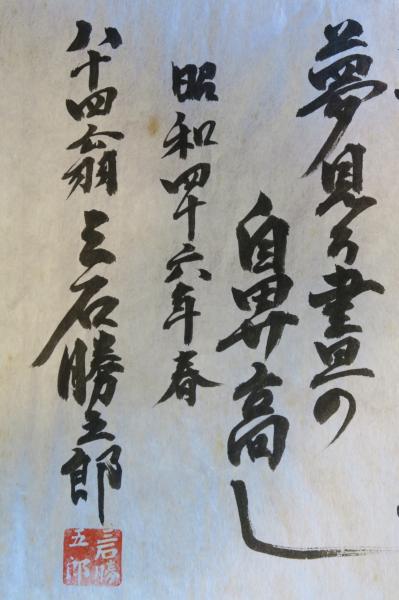 夢見る書皿の
鼻高し
昭和四十六年春
八十四翁 三石勝五郎
三石勝
五郎